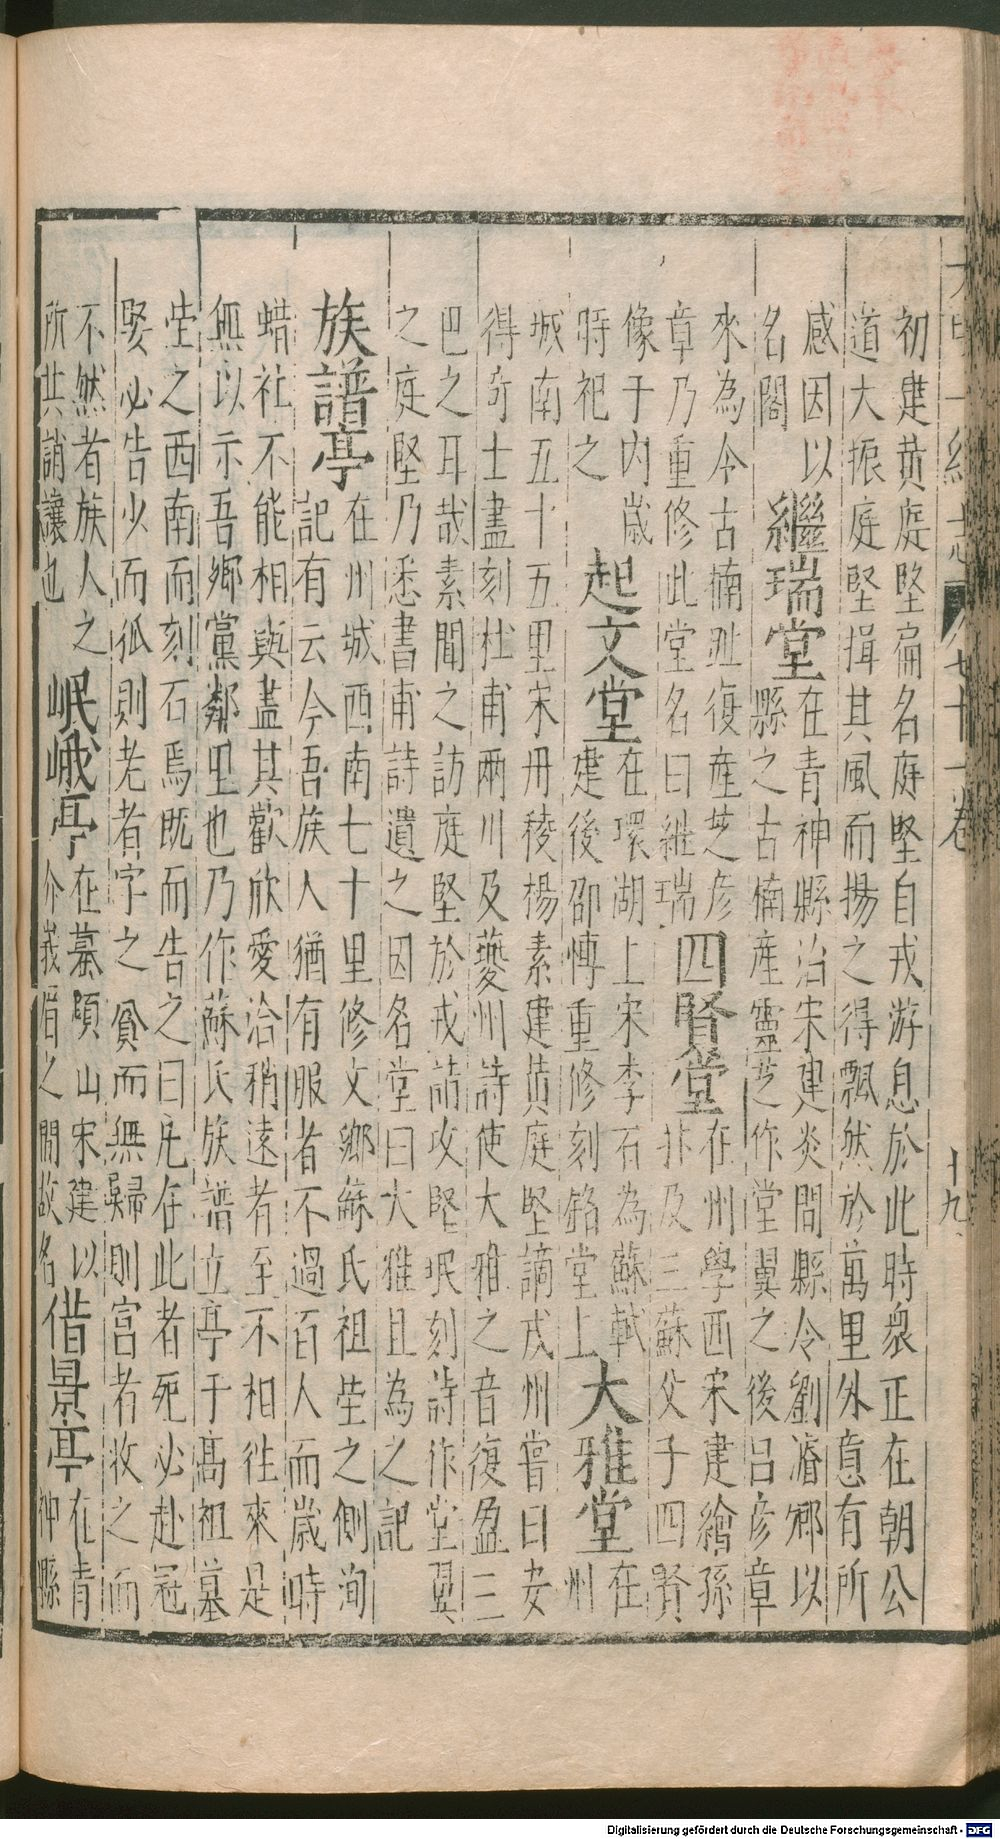 大明一統志 卷七十一卷 十九
初建黄庭堅扁名庭堅自戎游息於此時衆正在朝公
道大振庭堅揖其風而揚之得飄然於萬里外意有所
感因以
名閣
繼瑞堂
在青神縣治宋建炎間縣令劉濬鄉以
縣之古楠産靈芝作堂翼之後吕彦章
來為令古楠趾復産芝彦
章乃重修此堂名曰繼瑞
四賢堂
在州學西宋建繪孫
抃及三蘇父子四賢
像于内歲
時祀之
起文堂
在環湖上宋李石為蘇軾
建後卲愽重修刻銘堂上
大雅堂
在
州
城南五十五里宋丹稜楊素建黄庭堅謫戎州嘗曰安
得奇士盡刻杜甫兩川及夔州詩使大雅之音復盈三
巴之耳哉素聞之訪庭堅於戎請攻堅珉刻詩作堂翼
之庭堅乃悉書甫詩遺之因名堂曰大雅且為之記
族譜亭
在州城西南七十里修文鄉蘇氏祖塋之側洵
記有云今吾族人猶有服者不過百人而歲時
蜡社不能相與盡其歡欣愛洽稍遠者至不相往來是
無以示吾鄉黨鄰里也乃作蘇氏族譜立亭于高祖墓
塋之西南而刻石焉既而告之曰凡在此者死必赴冠
娶必告少而孤則老者字之貧而無歸則富者收之而
不然者族人之
所共誚讓也
岷峨亭
在蟇頤山宋建以
介峩眉之間故名
借景亭
在青
神縣
Digitalisierung gefördert durch die Deutsche Forschungsgemeinschaft - DFG